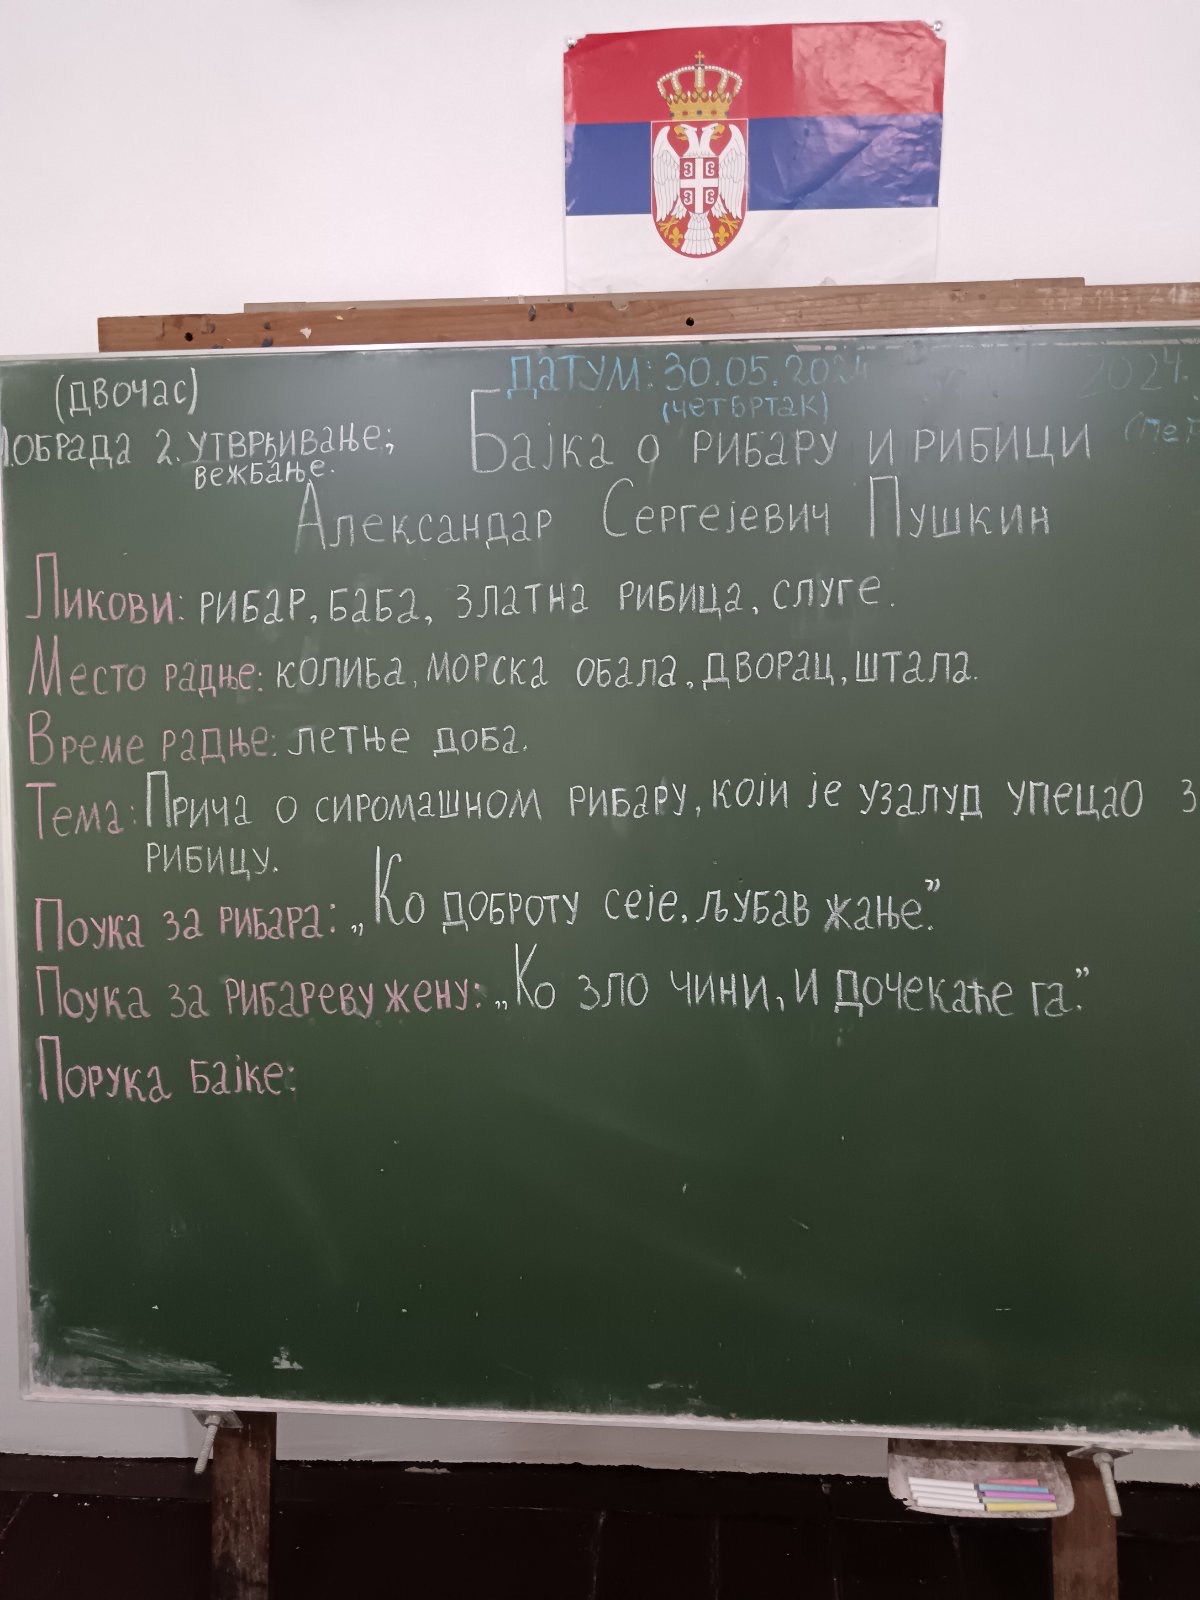 (двочас)
ДАТУМ: 30.05.2024
2024.
(четвртак)
1.ОБРАДА 2. УТВРЂИВАЊЕ;
вежбање.
Бајка о рибару и рибици
Александар Сергејевич Пушкин
Ликови: рибар, баба, златна рибица, слуге.
Место радње: колиба, морска обала, дворац, штала.
Време радње: летње доба.
Тема: Прича о сиромашном рибару, који је узалуд упецао з
рибицу.
Поука за рибара: „Ко доброту сеје, љубав жање.”
Поука за рибареву жену: „Ко зло чини, и дочекаће га.”
Порука бајке: